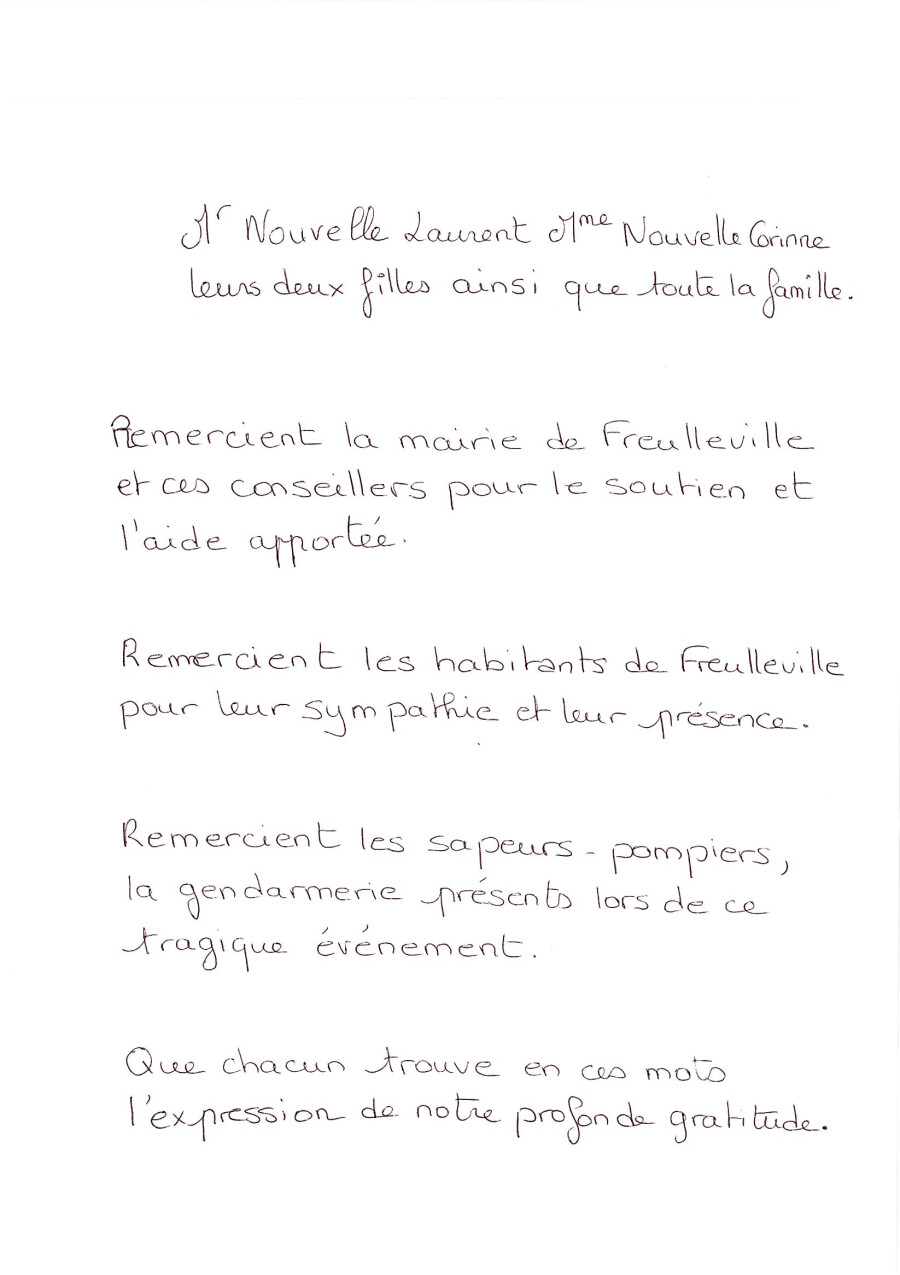 Mr Nouvelle Laurent Mme Nouvelle Corinne
leurs deux filles ainsi que toute la famille.
Remercient la mairie de Freulleville
et ces conseillers pour le soutien et
l'aide apportée.
Remercient les habitants de Freulleville
pour leur sympathie et leur présence.
Remercient les sapeurs-pompiers,
la gendarmerie présents lors de ce
tragique événement.
Que chacun trouve en ces mots
l'expression de notre profonde gratitude.